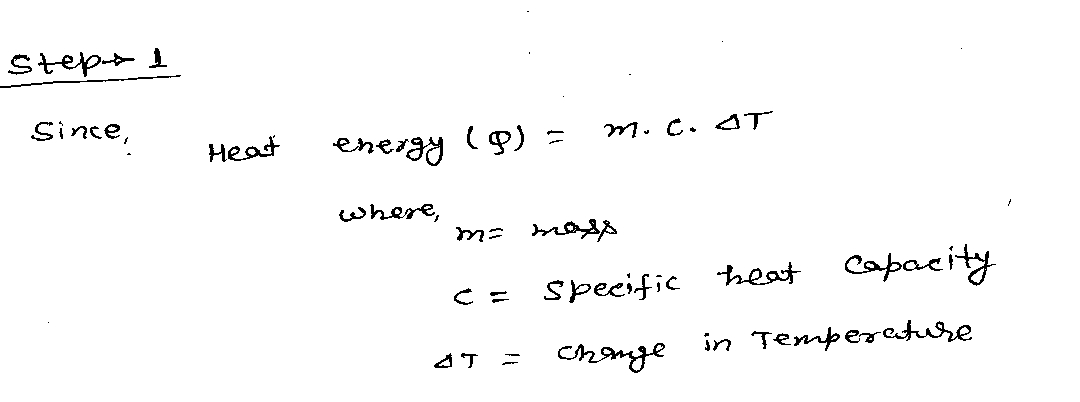 Step→ 1
Since, Heat energy (Q) = m. c. ΔT
where,
m= mass
c = Specific heat capacity
ΔT = change in Temperature